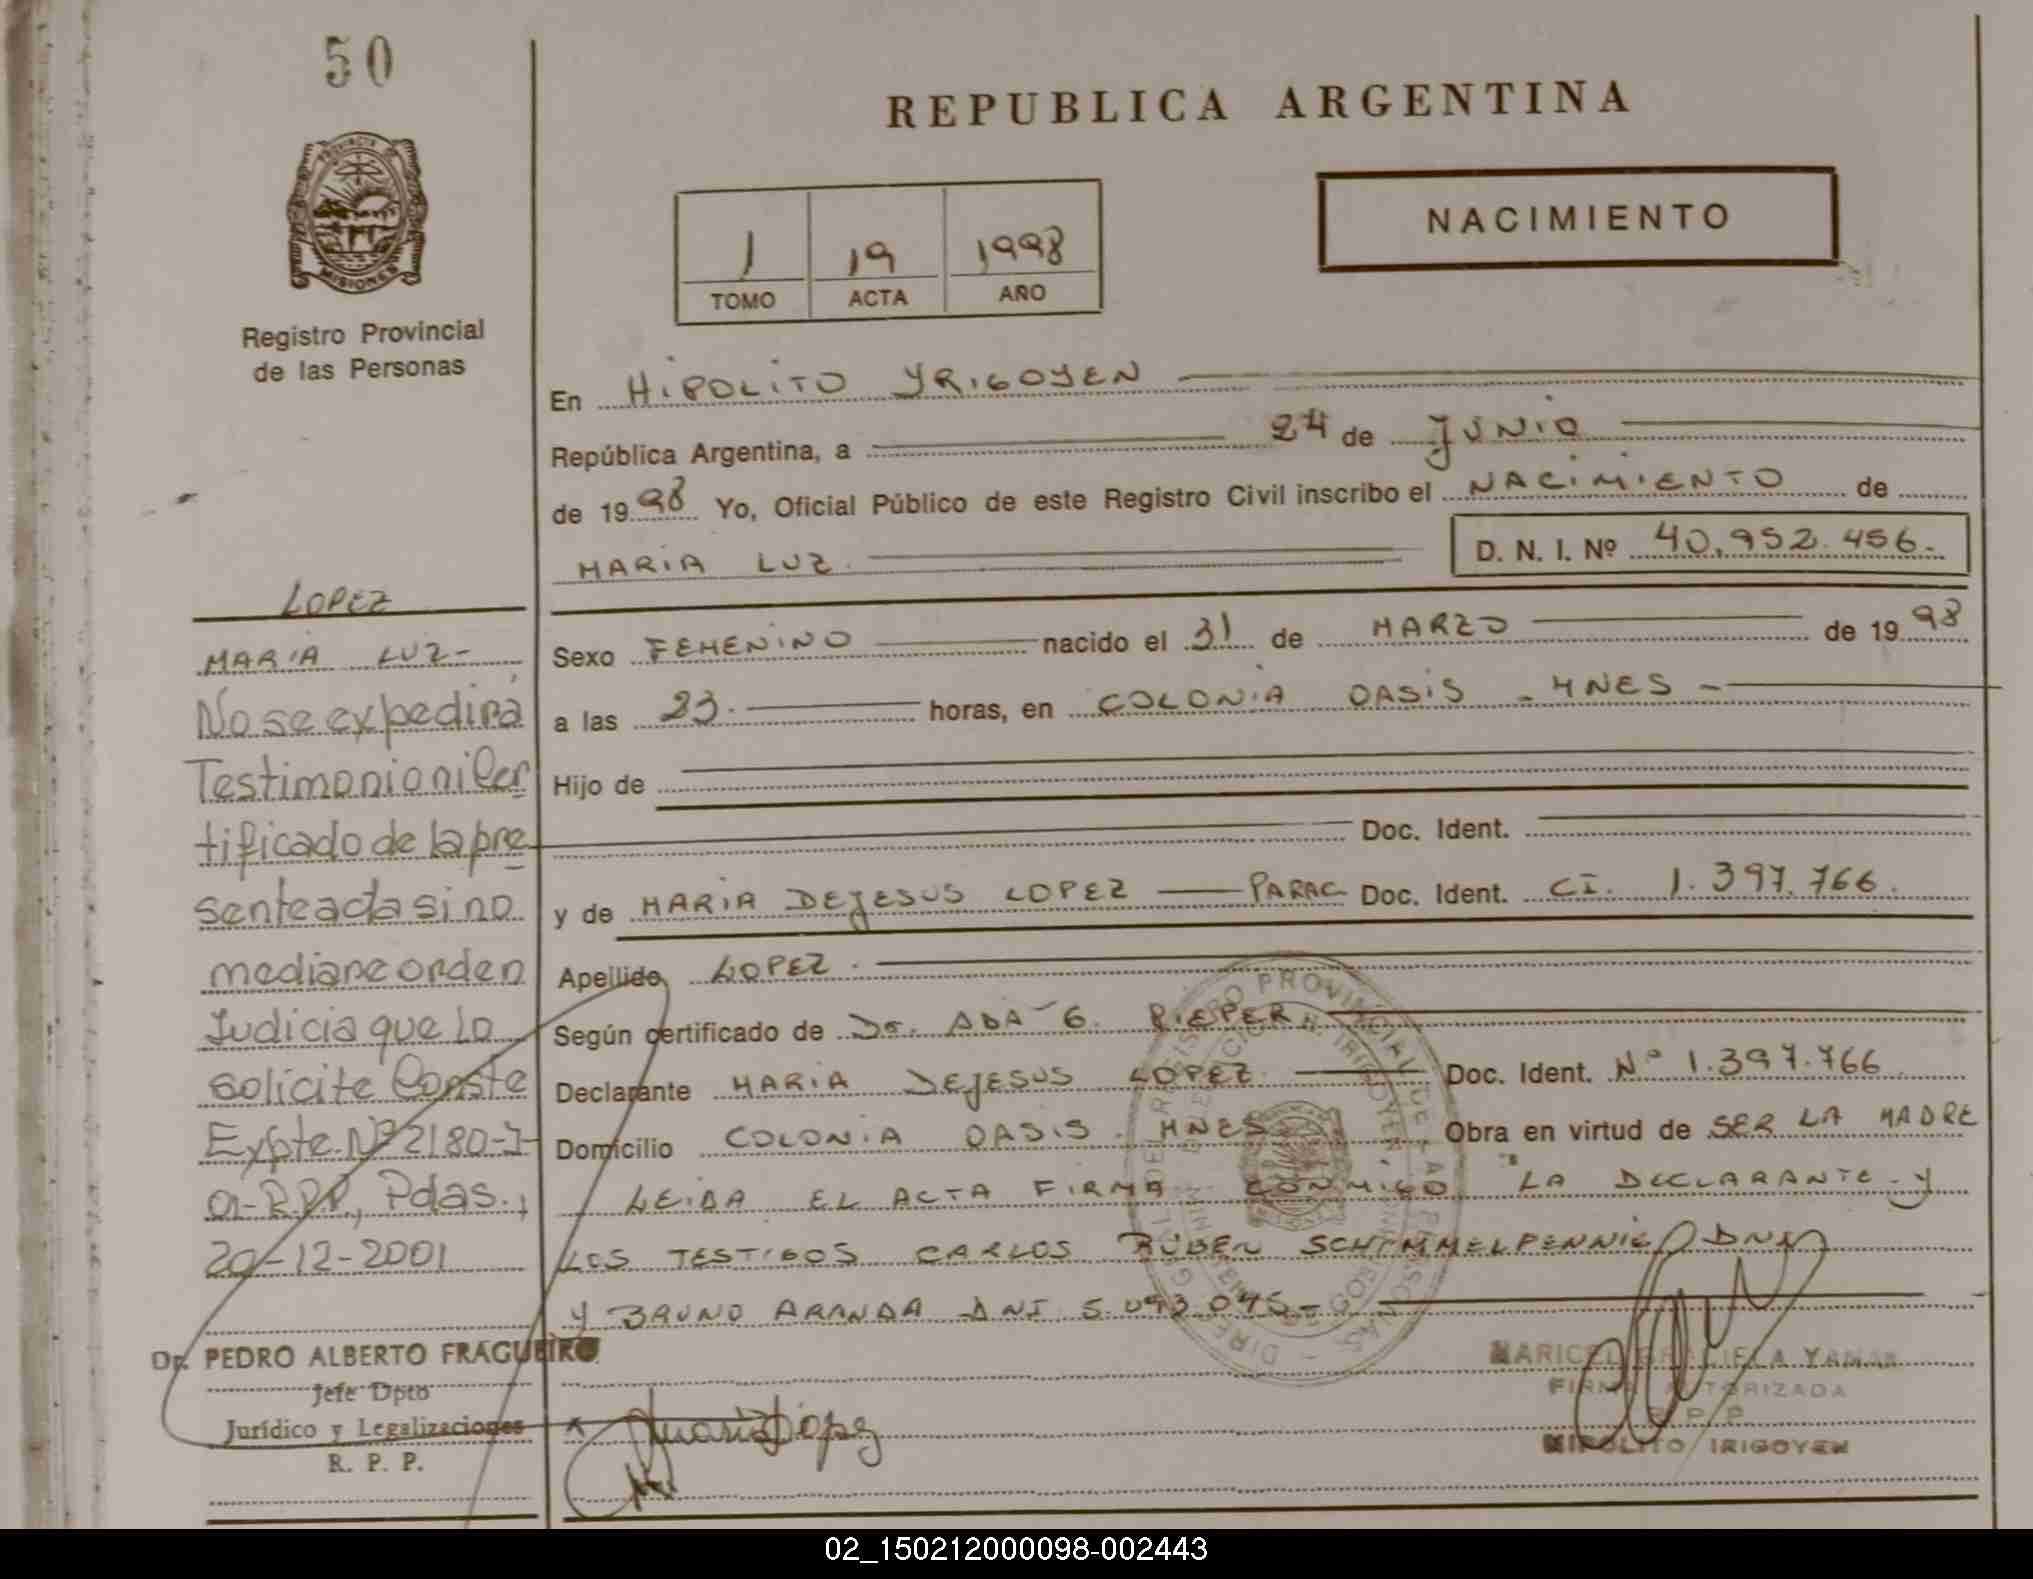 50
PROVINCIA DE
MISIONES
Registro Provincial
de las Personas
REPUBLICA ARGENTINA
NACIMIENTO
1 19 1998
TOMO ACTA AÑO
En HIPOLITO YRIGOYEN
República Argentina, a 24 de JUNIO
de 1998 Yo, Oficial Público de este Registro Civil inscribo el NACIMIENTO de
MARIA LUZ. D. N. I. Nº 40.952.456.-
Sexo FEMENINO nacido el 31 de MARZO de 1998
a las 23. horas, en COLONIA OASIS - MNES -
Hijo de
Doc. Ident.
y de MARIA DEJESUS LOPEZ PARAG Doc. Ident. CI. 1.397.766.
Apellido LOPEZ.
Según certificado de Dr. ADA G. RIEPER
Declarante MARIA DEJESUS LOPEZ Doc. Ident. Nº 1.397.766
Domicilio COLONIA OASIS. MNES Obra en virtud de SER LA MADRE
LEIDA EL ACTA FIRMA CONMIGO LA DECLARANTE Y
LOS TESTIGOS CARLOS RUBEN DNI
Y BRUNO ARANDA DNI 5.093.045-
LOPEZ
MARIA LUZ-
No se expedirá
Testimonio ni Cer
tificado de la pre
sente acta sino
mediane orden
Judicia que lo
solicite Conste
Expte. Nº 2180-J-
01-R.P.P., Pdas.,
20-12-2001
Dr. PEDRO ALBERTO FRAGUEIRO
Jefe Dpto
Jurídico y Legalizaciones
R. P. P.
Maria Lopez
MARICEL GRACIELA
FIRMA AUTORIZADA
R. P. P.
HIPOLITO IRIGOYEN
02_150212000098-002443